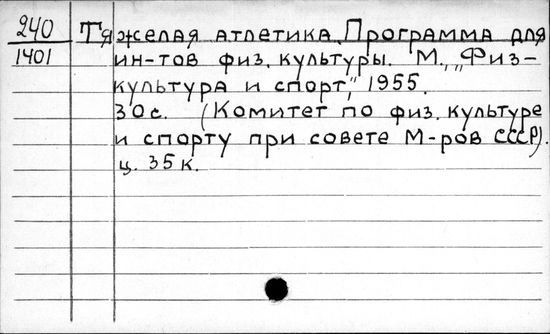 240
1401
Тяжелая атлетика. Программа для
ин-тов физ. культуры. М., „Физ-
культура и спорт“, 1955.
30с. (Комитет по физ. культуре
и спорту при совете М-ров СССР).
ц. 35 к.